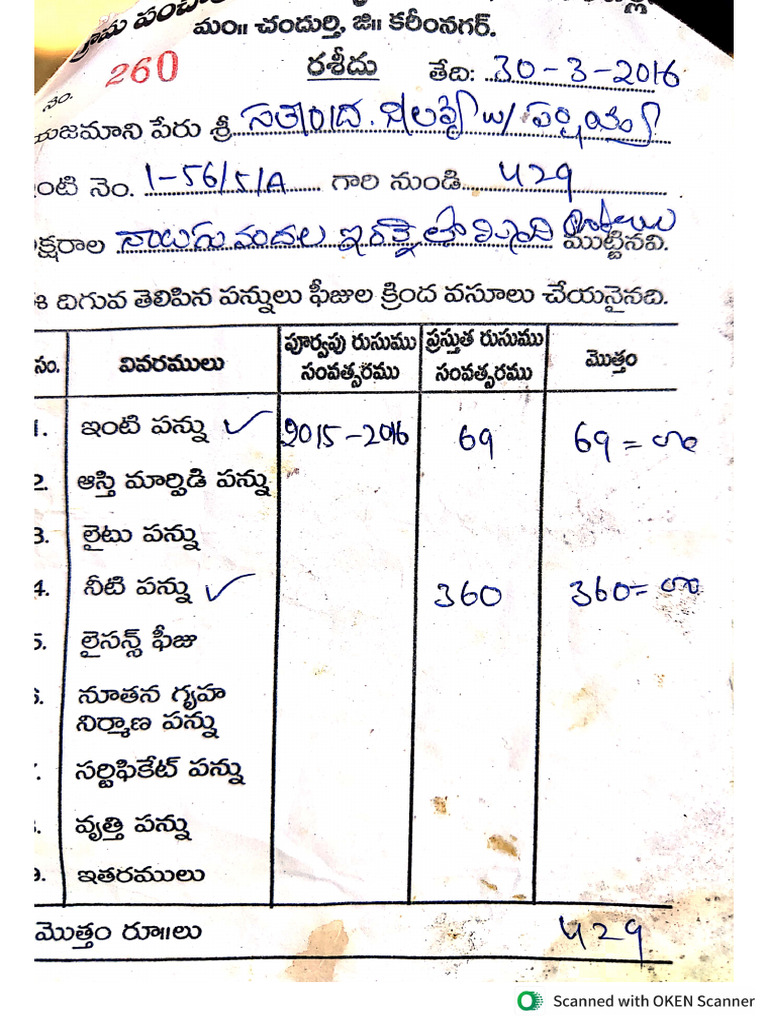 గ్రామ పంచా
మం॥ చందుర్తి, జి॥ కరీంనగర్.
260 రశీదు తేది: 30-3-2016
నం.
యజమాని పేరు శ్రీ
ంటి నెం. 1-56/5/A గారి నుండి 429
క్షరాల నాలుగు వందల ముట్టినవి.
ఈ దిగువ తెలిపిన పన్నులు ఫీజుల క్రింద వసూలు చేయనైనది.
సం. వివరములు పూర్వపు రుసుము సంవత్సరము ప్రస్తుత రుసుము సంవత్సరము మొత్తం
1. ఇంటి పన్ను ✓ 2015-2016 69 69=00
2. ఆస్తి మార్పిడి పన్ను
3. లైటు పన్ను
4. నీటి పన్ను ✓ 360 360=00
5. లైసెన్స్ ఫీజు
6. నూతన గృహ
నిర్మాణ పన్ను
7. సర్టిఫికేట్ పన్ను
8. వృత్తి పన్ను
9. ఇతరములు
మొత్తం రూ॥లు 429
Scanned with OKEN Scanner